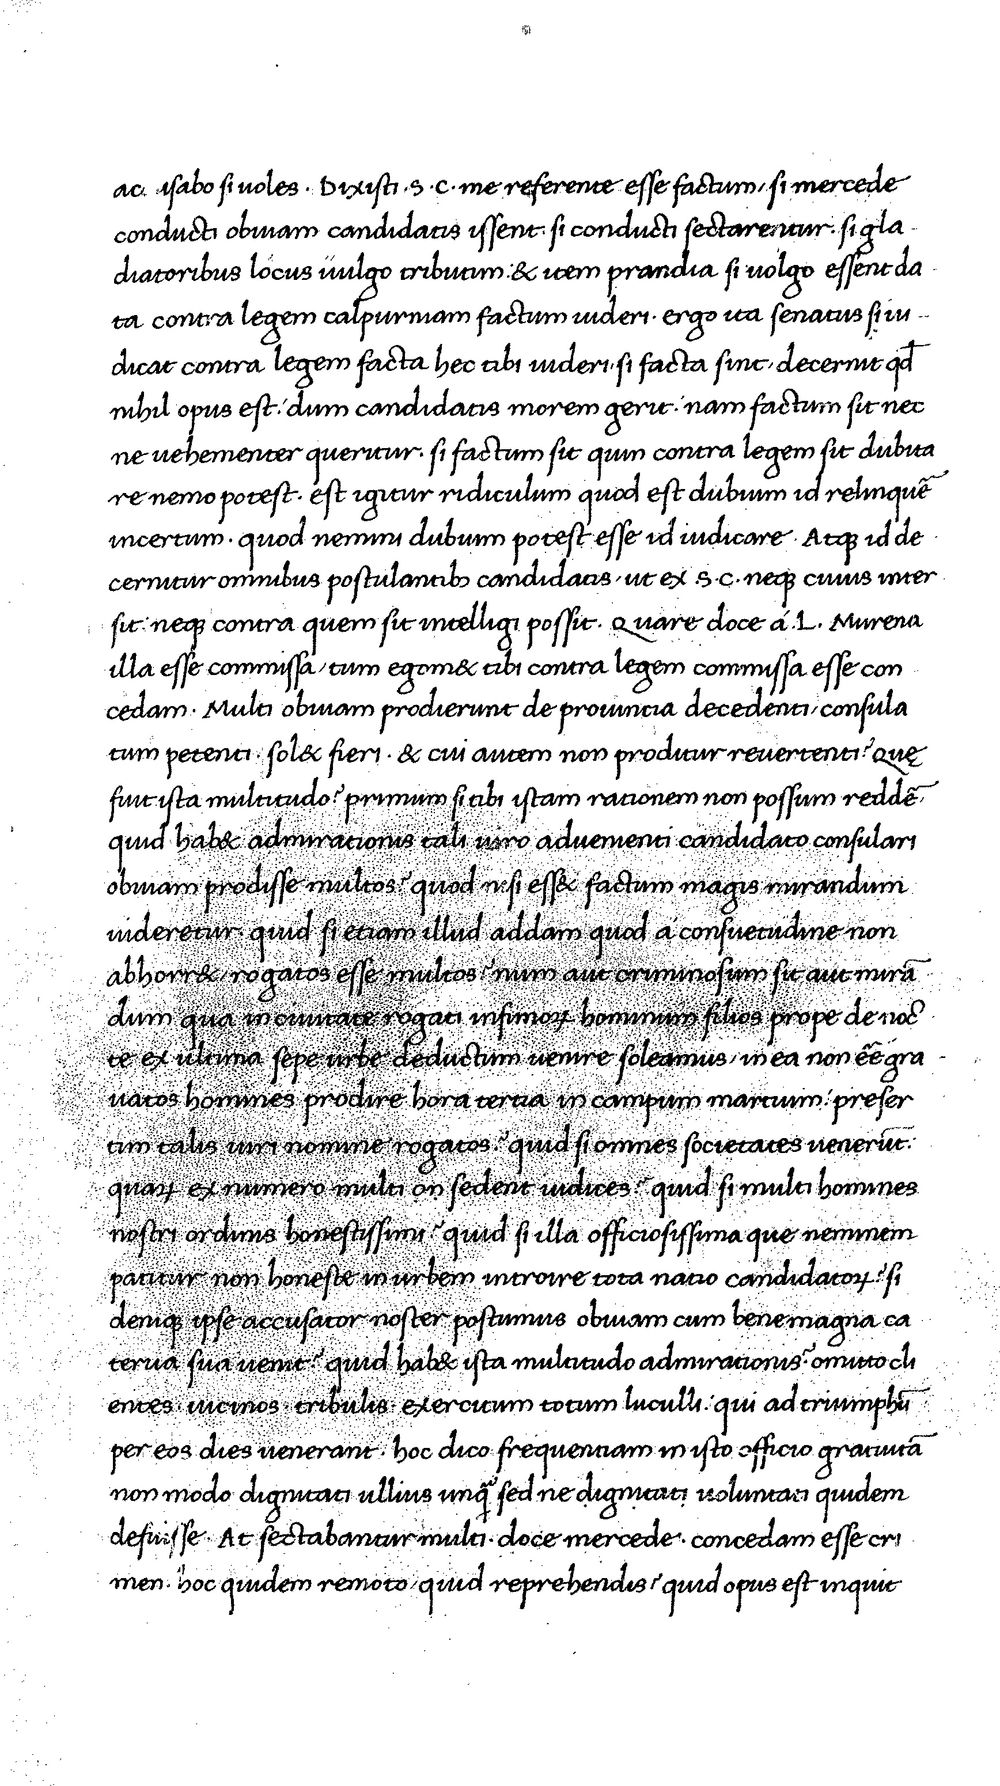 ac isabo si uoles · Dixisti · s · c · me referente esse factum, si mercede
conducti obuiam candidatis issent: si conducti sectarentur: si gla-
diatoribus locus uulgo tributim: & item prandia si uolgo essent da-
ta contra legem calpurniam factum uideri · ergo ita senatus si iu-
dicat contra legem facta hec tibi uideri, si facta sint, decernit qđ
nihil opus est: dum candidatis morem gerit: nam factum sit nec
ne uehementer queritur · si factum sit quin contra legem sit dubita
re nemo potest · est igitur ridiculum quod est dubium id relinquē
incertum · quod nemini dubium potest esse id iudicare · Atqꝫ id de
cernitur omnibus postulantibꝫ candidatis, ut ex · s · c · neqꝫ cuius inter
sit: neqꝫ contra quem sit intelligi possit · Quare doce á · L · Murena
illa esse commissa, tum egom& tibi contra legem commissa esse con
cedam · Multi obuiam prodierunt de prouincia decedenti, consula
tum petenti · sol& fieri · & cui autem non proditur reuertenti? Quę
fuit ista multitudo? primum si tibi istam rationem non possum reddē,
quid hab& admirationis tali uiro aduenienti candidato consulari
obuiam prodisse multos? quod n: si ess& factum magis mirandum
uideretur · quid si etiam illud addam quod á consuetudine non
abhorr&, rogatos esse multos? num aut criminosum sit aut mirā
dum qua in ciuitate rogati infimoꝝ hominum filios prope de noc̄
te ex ultima sepe urbe deductum uenire soleamus, in ea non eē gra
uatos homines prodire hora tertia in campum martium: preser
tim talis uiri nomine rogatos? quid si omnes societates uenerūt:
quaꝝ ex numero multi on sedent iudices? quid si multi homines
nostri ordinis honestissimi? quid si illa officiosissima que neminem
patitur non honeste in urbem introire tota natio candidatoꝝ? si
deniqꝫ ipse accusator noster postumus obuiam cum bene magna ca
terua sua uenit? quid hab& ista multitudo admirationis? omitto cli
entes · uicinos · tribulis · exercitum totum luculli: qui ad triumphū
per eos dies uenerant · hoc dico frequentiam in isto officio gratuitā
non modo dignitati ullius unq̄ sed ne dignitati uoluntati quidem
defuisse · At sectabantur multi · doce mercede · concedam esse cri
men · hoc quidem remoto, quid reprehendis? quid opus est inquit